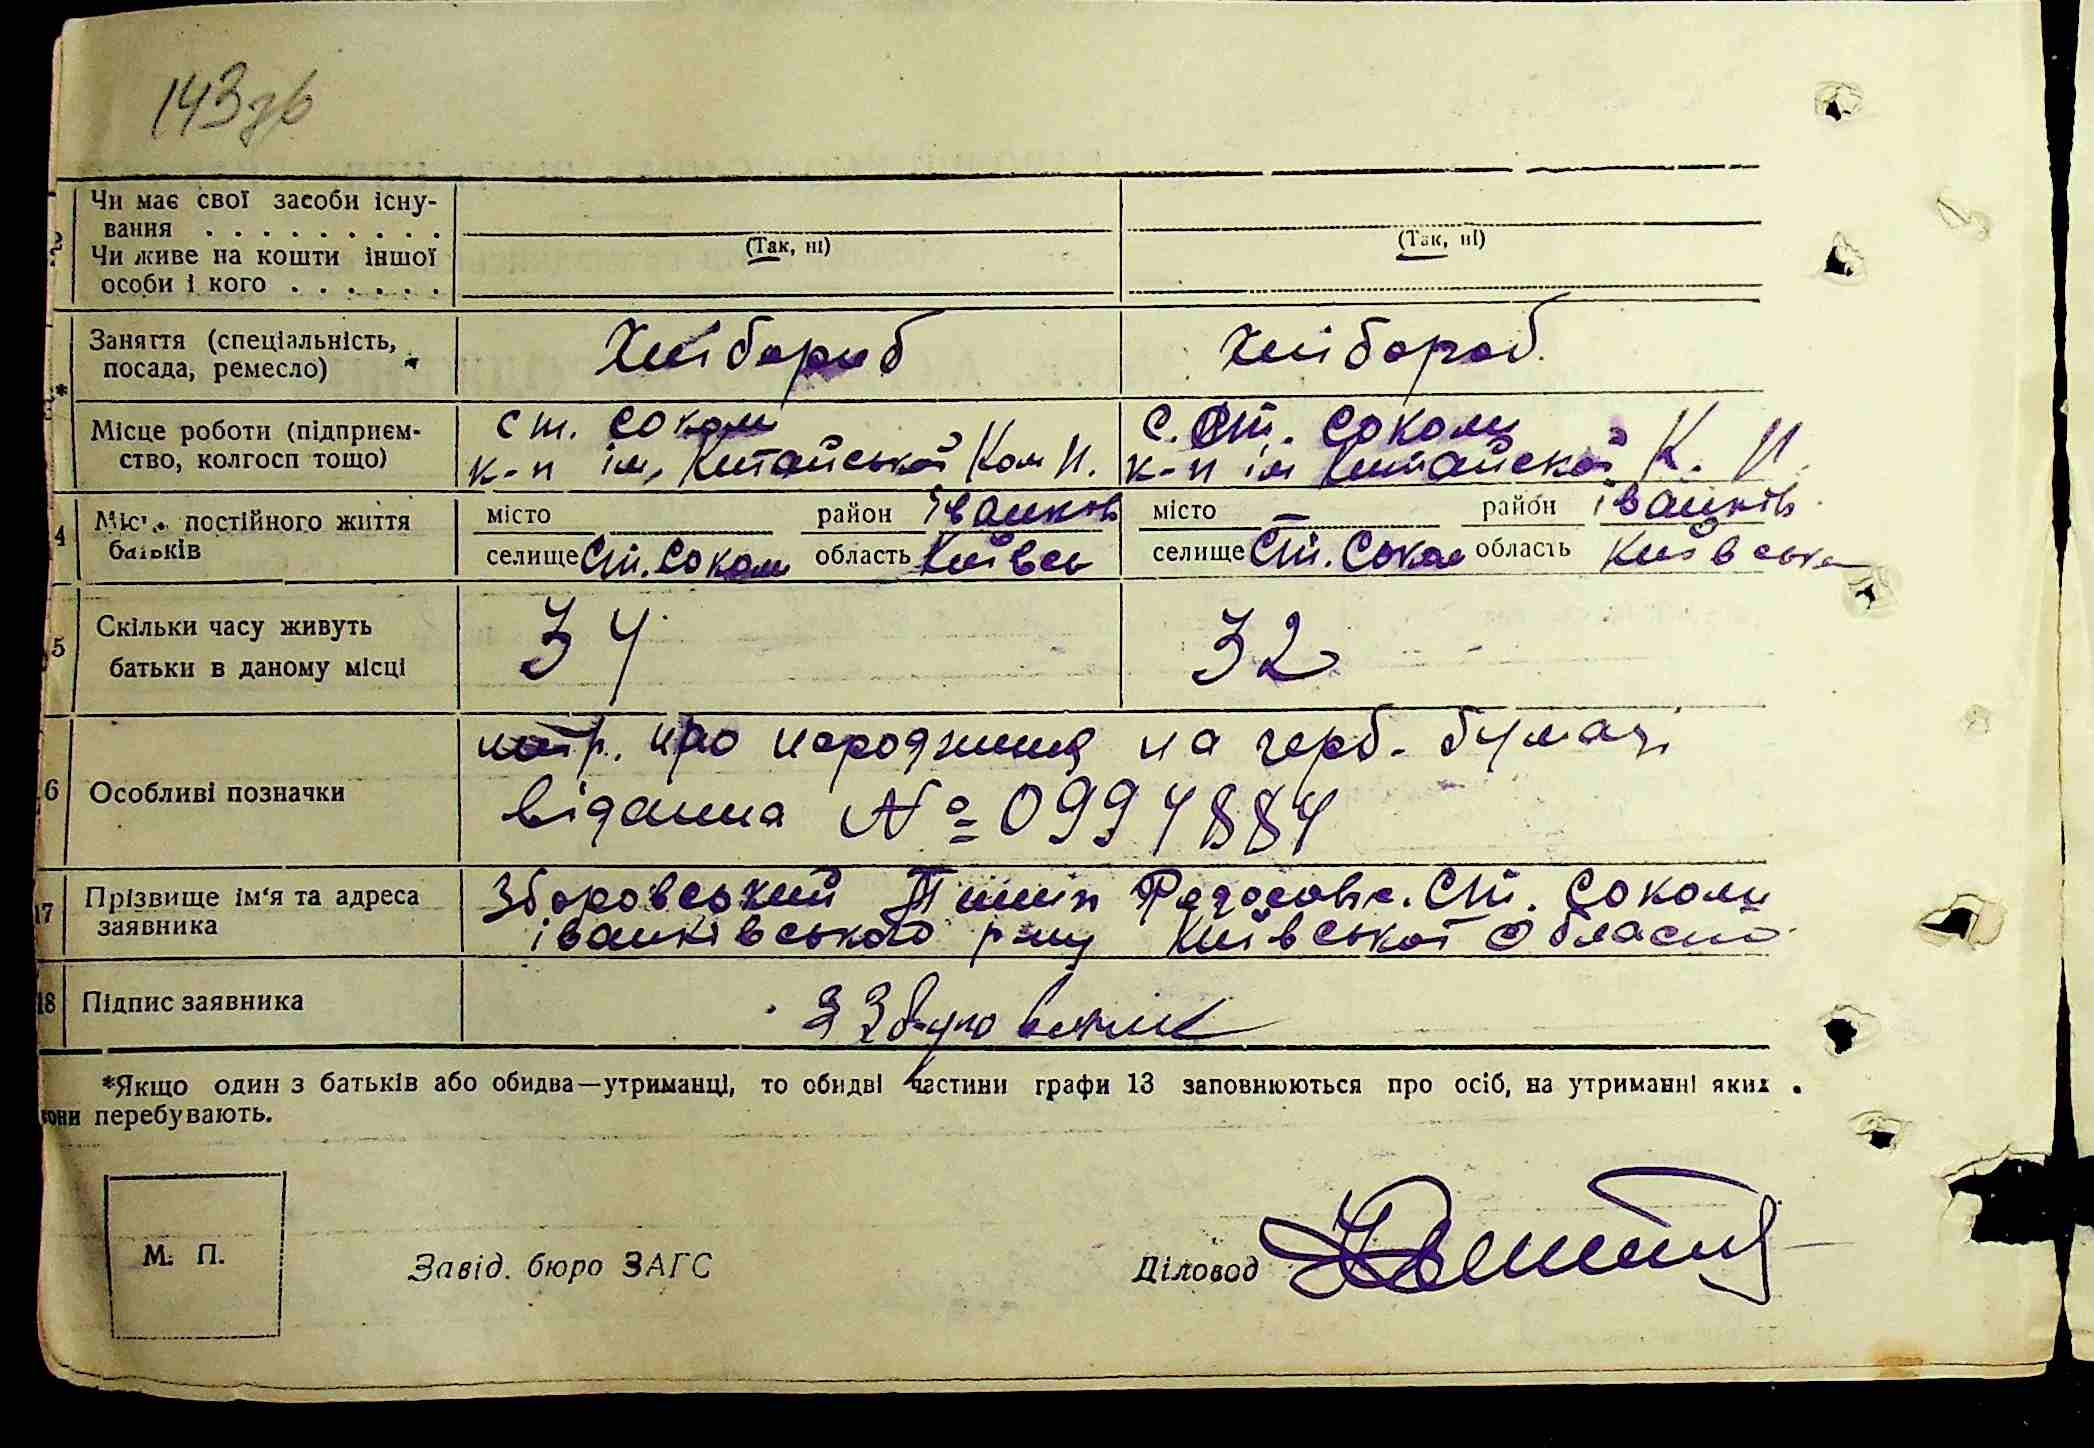 143зв
Чи має свої засоби існу-
вання . . . . . . . . .
(Так, ні) (Так, ні)
Чи живе на кошти іншої
особи і кого . . . . . .
Заняття (спеціальність, Хлібороб хлібороб
посада, ремесло)
* ст. соколи с. Ст. соколи
Місце роботи (підприєм-
ство, колгосп тощо) к-п ім. Китайської Ком П. к-п ім Китайскої К. П.
4 Місце постійного життя місто — район Іванків місто — район Іванків
батьків селище Ст. Соколи область Київсь селище Ст. Соколи область Київська
5 Скільки часу живуть 34 32
батьки в даному місці
про народження на герб. бумазі
6 Особливі позначки
видана № 0994884
17 Прізвище ім'я та адреса Зборовський Ст. Соколи
заявника іванківського р-ну Київської Області
18 Підпис заявника
*Якщо один з батьків або обидва—утриманці, то обидві частини графи 13 заповнюються про осіб, на утриманні яких
вони перебувають.
М. П. Завід. бюро ЗАГС Діловод